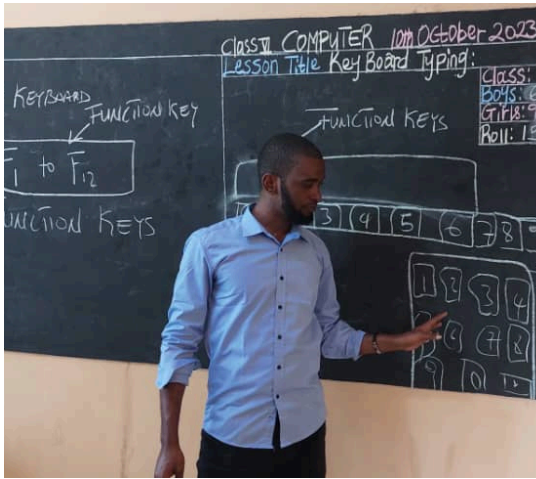 Class VI COMPUTER 10th October 2023
Lesson Title Key Board Typing:
Class:
Boys: 6
Girls: 9
Roll: 15
KEYBOARD
FUNCTION KEY
F1 to F12
FUNCTION KEYS
FUNCTION KEYS
3 4 5 6 7 8
1 2 3 4
6 7 8
9 0